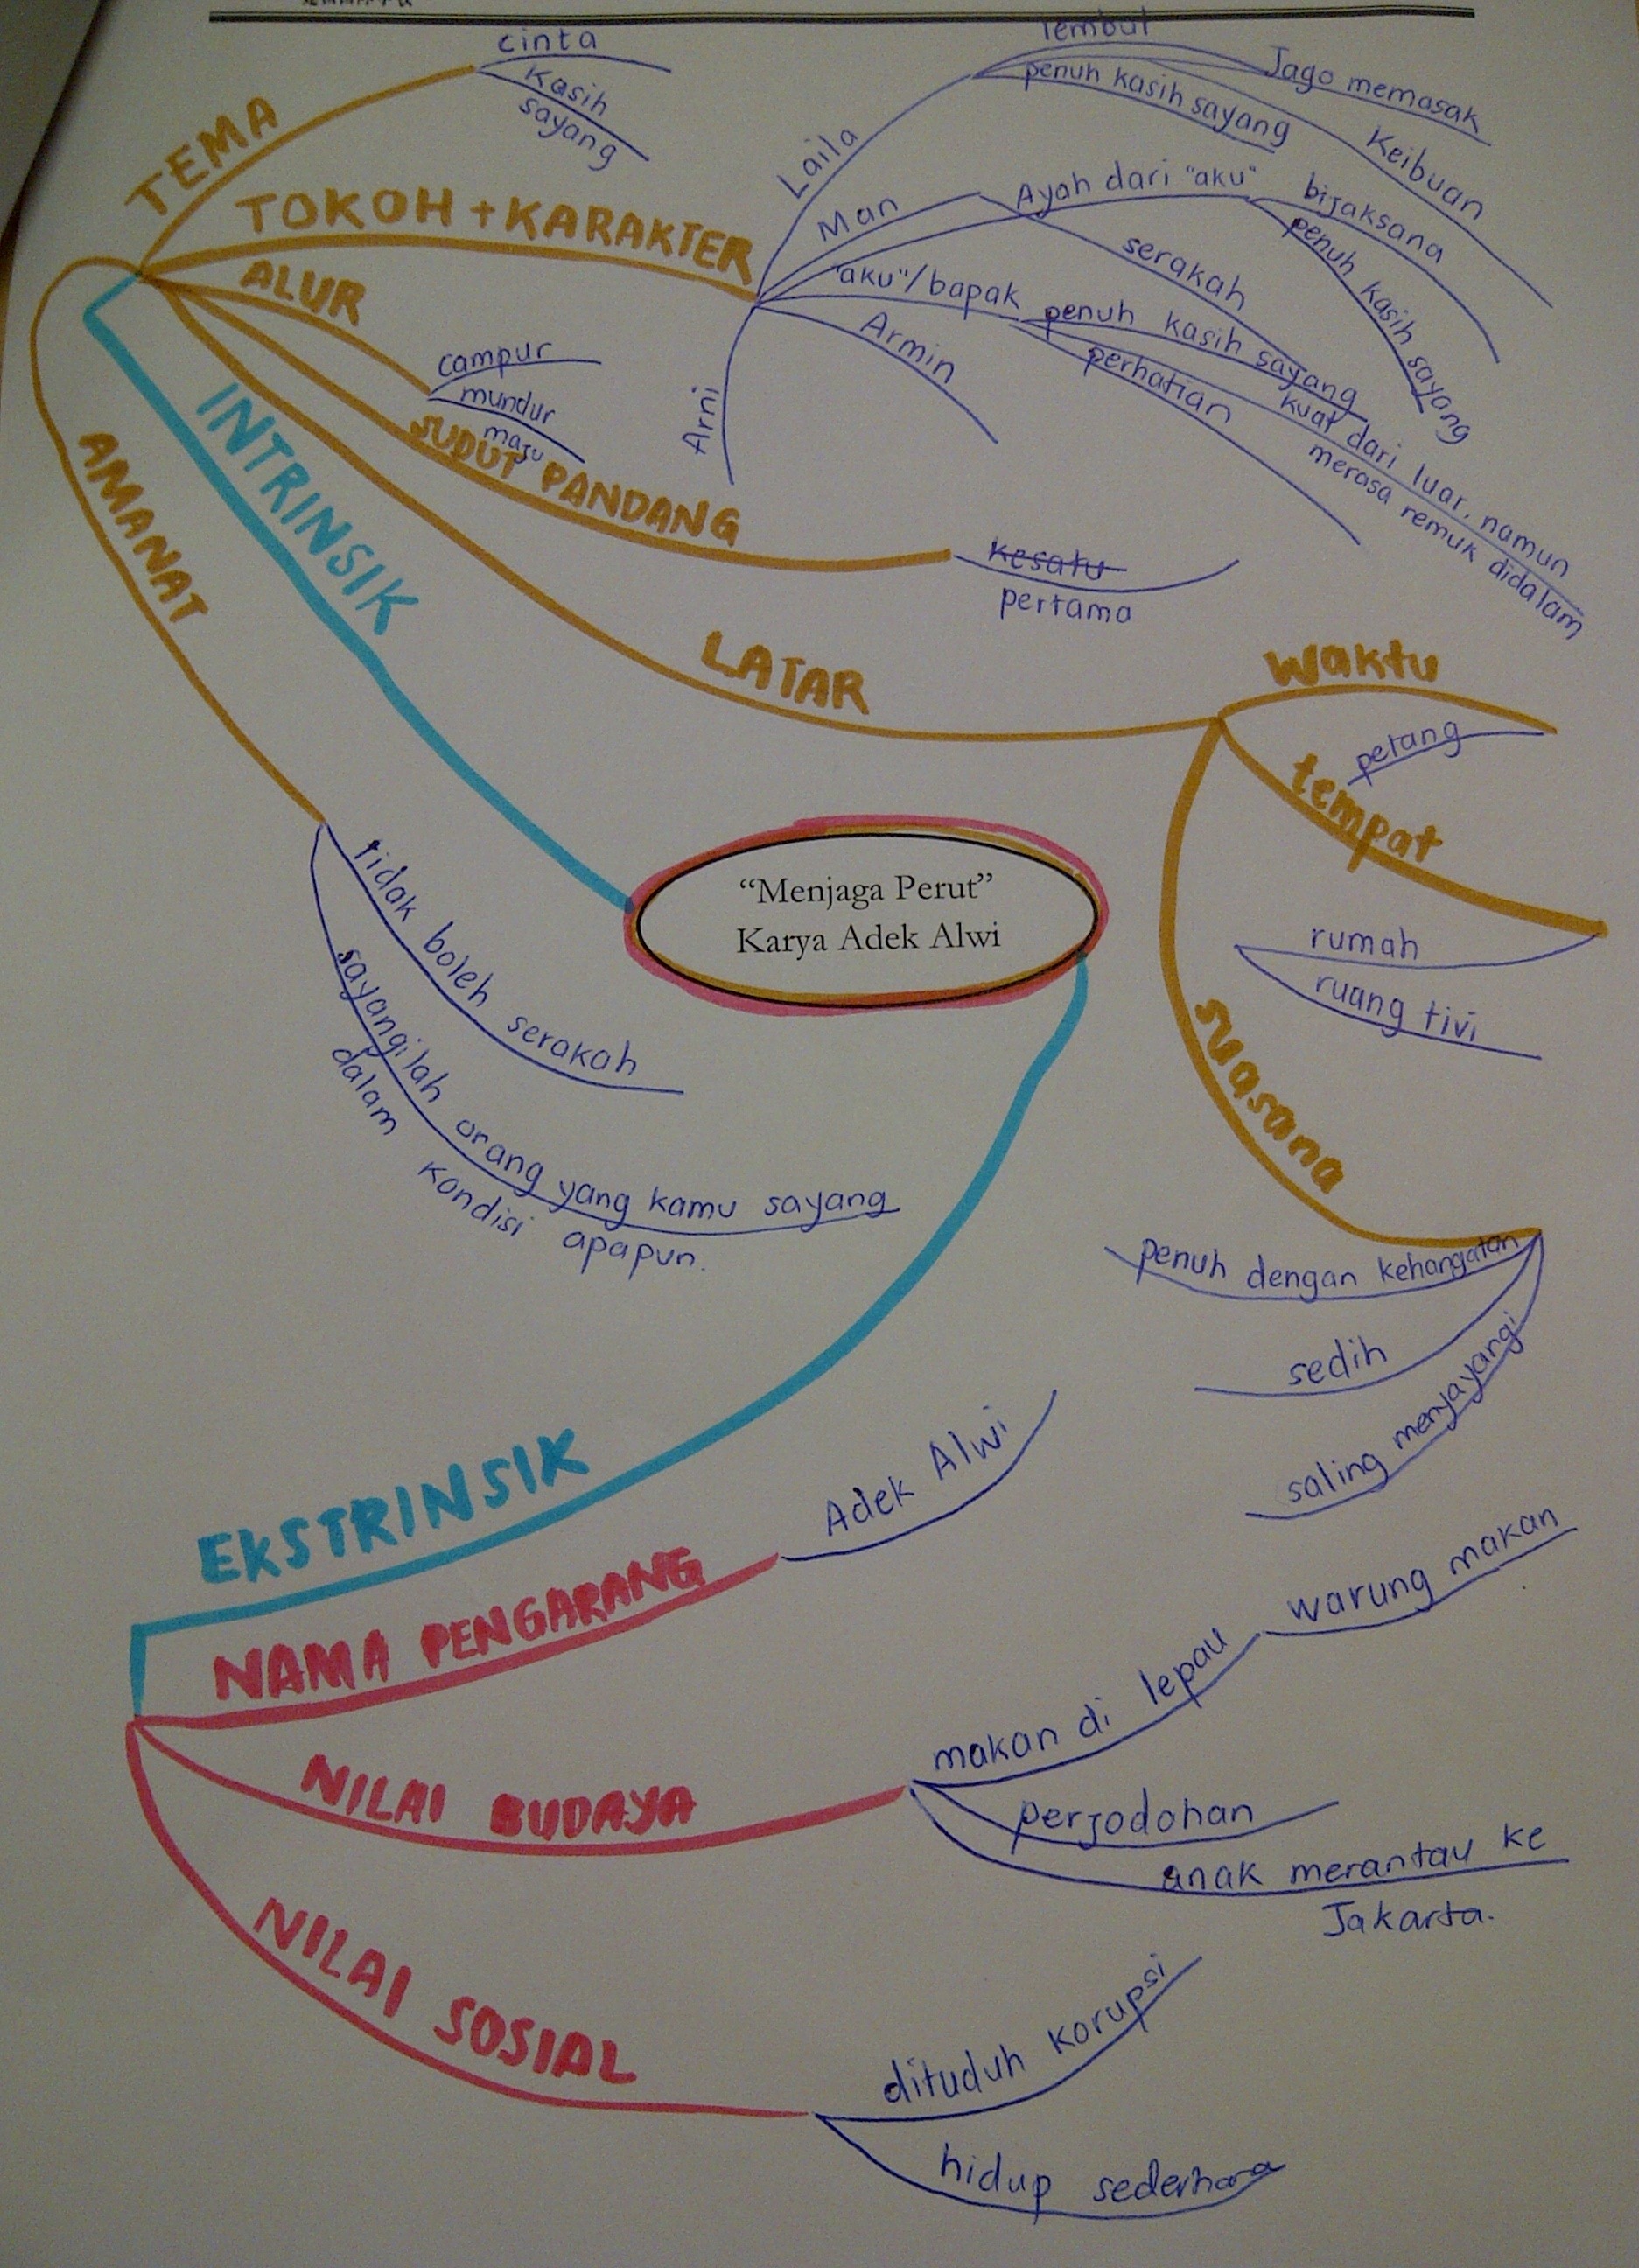 TEMA
cinta
kasih
sayang
TOKOH + KARAKTER
Laila
lembut
penuh kasih sayang
Jago memasak
Keibuan
Man
serakah
Ayah dari "aku"
bijaksana
penuh kasih sayang
"aku"/bapak
penuh kasih sayang
perhatian
kuat dari luar, namun
merasa remuk didalam
Armin
Arni
ALUR
campur
mundur
maju
SUDUT PANDANG
kesatu
pertama
LATAR
waktu
petang
tempat
rumah
ruang tivi
suasana
penuh dengan kehangatan
sedih
saling menyayangi
INTRINSIK
AMANAT
tidak boleh serakah
sayangilah orang yang kamu sayang
dalam kondisi apapun.
"Menjaga Perut"
Karya Adek Alwi
EKSTRINSIK
NAMA PENGARANG
Adek Alwi
NILAI BUDAYA
makan di lepau
warung makan
perjodohan
anak merantau ke
Jakarta.
NILAI SOSIAL
dituduh korupsi
hidup sederhana